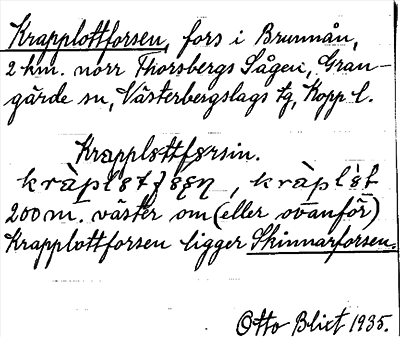 Krapplottforsen, fors i Brunnån,
2 km. norr Thorsbergs Sågen, Gran-
gärde sn, Västerbergslags tg, Kopp. l.
Krapplottforsin.
200 m. väster om (eller ovanför)
Krapplottforsen ligger Skinnarforsen.
Otto Blixt 1935.